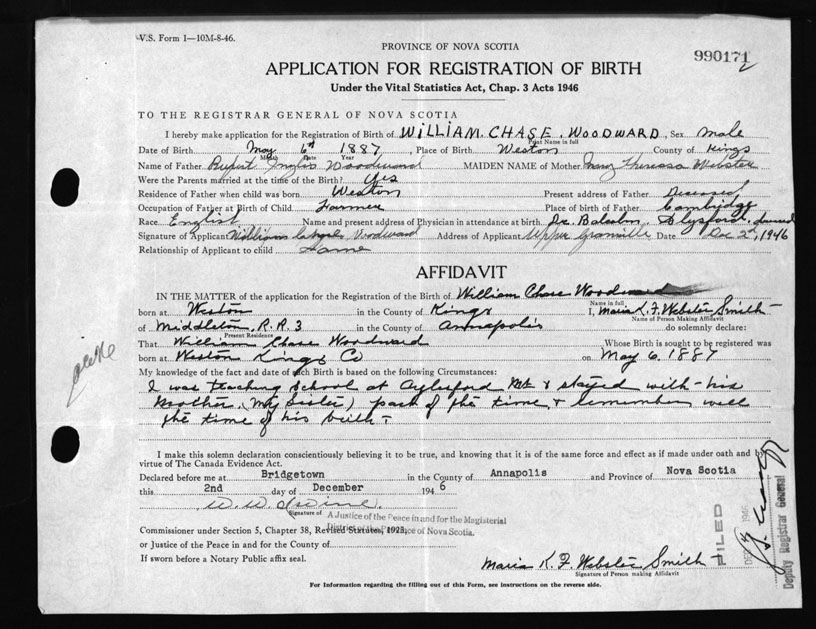 V.S. Form 1—10M-8-46.
PROVINCE OF NOVA SCOTIA
990171
APPLICATION FOR REGISTRATION OF BIRTH
Under the Vital Statistics Act, Chap. 3 Acts 1946
TO THE REGISTRAR GENERAL OF NOVA SCOTIA
I hereby make application for the Registration of Birth of WILLIAM. CHASE. WOODWARD, Sex Male
Print Name in full
Date of Birth May 6th 1887, Place of Birth Weston County of Kings
Month Date Year
Name of Father Rupert Inglis Woodward MAIDEN NAME of Mother Mary Theresa Webster
Were the Parents married at the time of the Birth? Yes
Residence of Father when child was born Weston Present address of Father Deceased
Occupation of Father at Birth of Child Farmer Place of birth of Father Cambridge
Race English Name and present address of Physician in attendance at birth Dr.
Signature of Applicant William Woodward Address of Applicant Upper Granville Date Dec 2nd, 1946
Relationship of Applicant to child Same
AFFIDAVIT
IN THE MATTER of the application for the Registration of the Birth of William Chase Woodward
Name in full
born at Weston in the County of Kings I, Maria K. F. Webster Smith
Name of Person Making Affidavit
of Middleton, R.R. 3 in the County of Annapolis do solemnly declare:
Present Residence
That William Chase Woodward Whose Birth is sought to be registered was
born at Weston Kings Co on May 6. 1887
My knowledge of the fact and date of such Birth is based on the following Circumstances:
I was teaching school at Aylesford Mt & stayed with his
Mother, (My Sister) part of the time & remember well
the time of his birth.
I make this solemn declaration conscientiously believing it to be true, and knowing that it is of the same force and effect as if made under oath and by
virtue of The Canada Evidence Act.
Declared before me at Bridgetown in the County of Annapolis and Province of Nova Scotia
this 2nd day of December 1946
Signature of A Justice of the Peace in and for the Magisterial
Commissioner under Section 5, Chapter 38, Revised Statutes, 1923,
District of the Province of Nova Scotia.
or Justice of the Peace in and for the County of
If sworn before a Notary Public affix seal.
Maria K. F. Webster Smith
Signature of Person making Affidavit
For Information regarding the filling out of this Form, see instructions on the reverse side.
FILED
DEC 1946
Deputy Registrar General